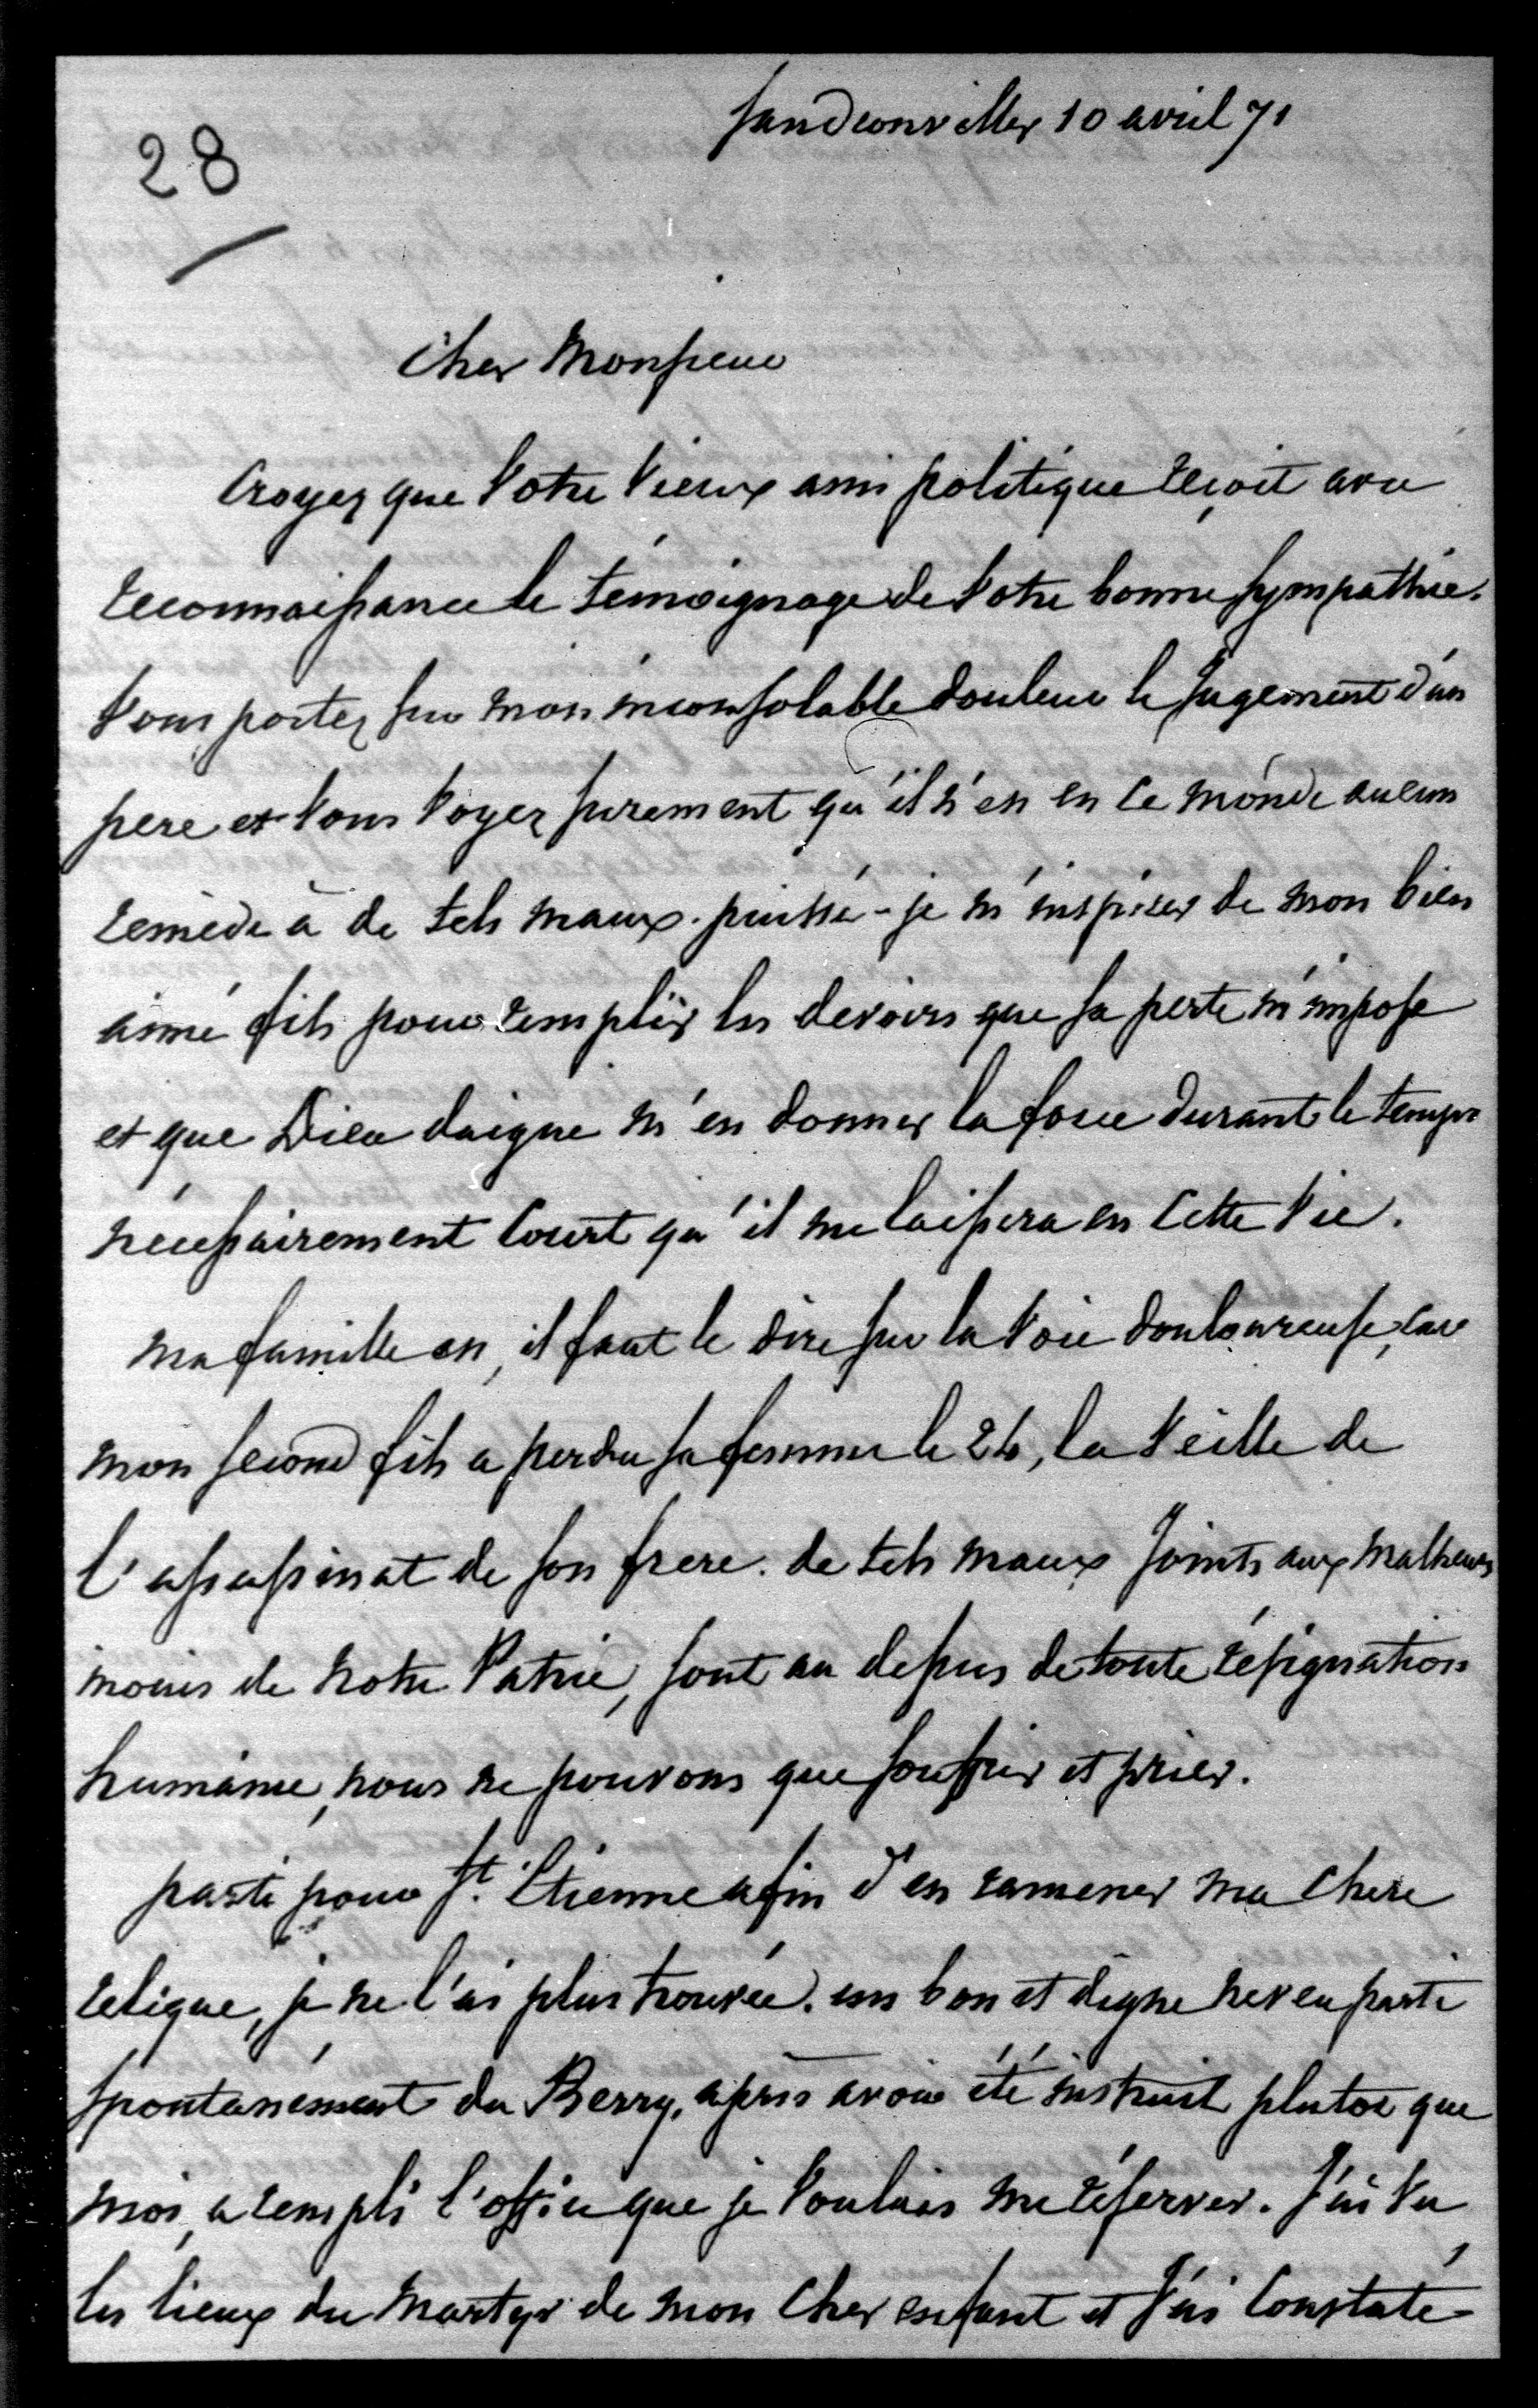 Jandconviller 10 avril 71
28
Cher Monsieur
Croyez que Votre Vieux ami politique reçoit avec
reconnaissance le témoignage de Votre bonne sympathie.
Vous portez sur mon inconsolable douleur le jugement d'un
pere et Vous Voyez surement qu'il n'est en ce monde aucun
remède à de tels maux. puissé-je m'inspirer de mon bien
aimé fils pour remplir les devoirs que sa perte m'impose
et que Dieu daigne m'en donner la force durant le temps
nécessairement Court qu'il me laissera en Cette Vie.
ma famille est, il faut le dire sur la Voie douloureuse, car
mon second fils a perdu sa femme le 24, la Veille de
l'assassinat de son frere. de tels maux Joints aux malheurs
inouis de notre Patrie, sont au dessus de toute résignation
humaine, nous ne pouvons que souffrir et prier.
parti pour St. Etienne afin d'en ramener ma Chere
relique, je ne l'ai plus trouvée. un bon et digne neveu parti
spontanément du Berry, après avoir été instruit plutot que
moi, a rempli l'office que je Voulais me réserver. J'ai Vu
les lieux du Martyr de mon Cher enfant et J'ai Constaté